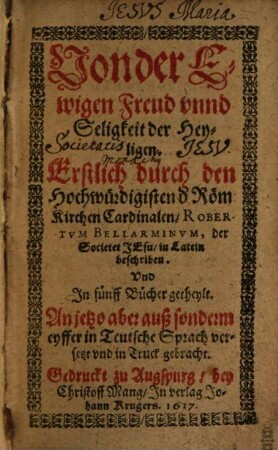 JESVS Maria
Von der E-
wigen Freud vnnd
Seligkeit der Hey-
ligen.
Societatis JESV
Erstlich durch den
Hochwürdigisten d Röm
Kirchen Cardinalen/ ROBER-
TVM BELLARMINVM, der
Societet JEsu/ in Latein
beschriben.
Vnd
In fünff Bücher getheylt.
An jetzo aber auß sonderm
eyffer in Teutsche Sprach ver-
setzt vnd in Truck gebracht.
Gedruckt zu Augspurg/ bey
Christoff Mang/ In verlag Jo-
hann Krugers. 1617.